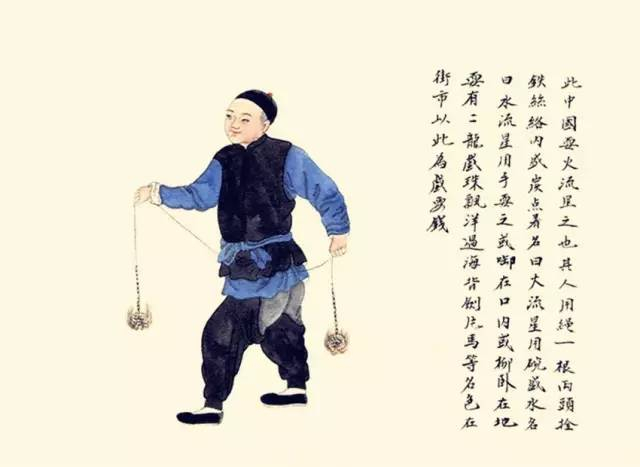 此中國耍火流星之也其人用繩一根两頭拴
鉄絲絡内盛炭点着名曰火流星用碗盛水名
曰水流星用手耍之或啣在口内或仰卧在地
耍有二龍戲珠觀洋過海背劍片馬等名色在
街市以此為戲耍錢